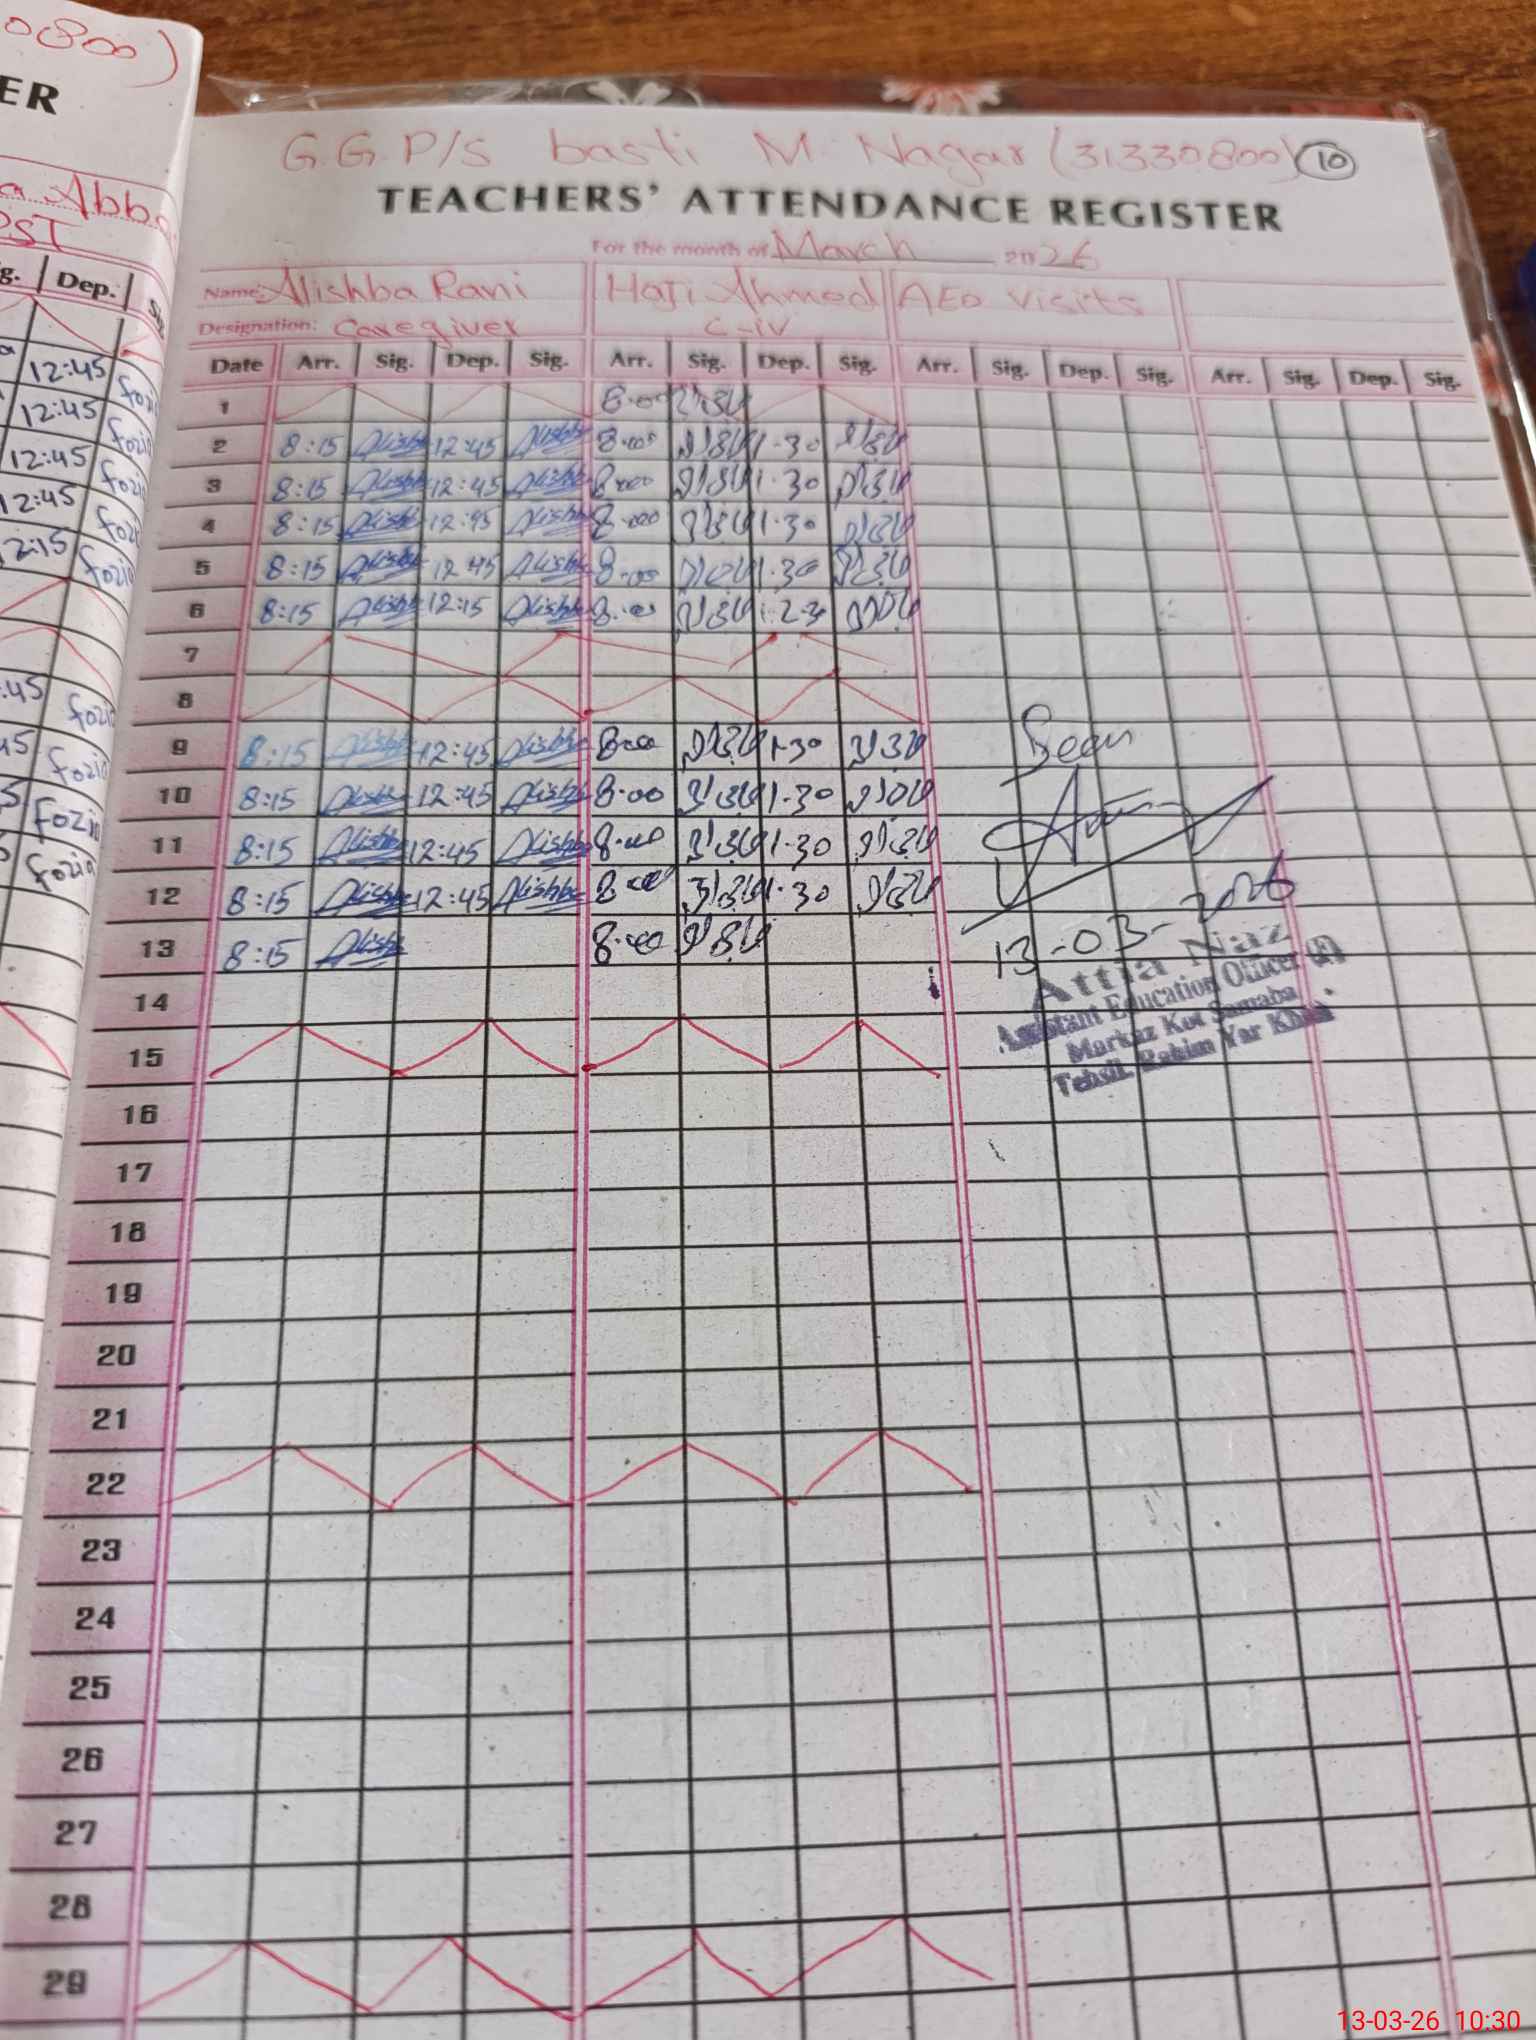 0800)
ER
a Abba
PST
g. Dep. Sig.
12:45 fozia
12:45 fozia
12:45 fozia
12:45 fozia
12:15 fozia
:45 fozia
45 fozia
5 fozia
fozia
G.G.P/S basti M. Nagar (31330800) 10
TEACHERS' ATTENDANCE REGISTER
For the month of March 2026
Name: Alishba Rani Haji Ahmed AEO Visits
Designation: Caregiver C-iv
Date Arr. Sig. Dep. Sig. Arr. Sig. Dep. Sig. Arr. Sig. Dep. Sig. Arr. Sig. Dep. Sig.
1 8:00
2 8:15 Alishba 12:45 Alishba 8:00 1:30
3 8:15 Alishba 12:45 Alishba 8:00 1:30
4 8:15 Alishba 12:45 Alishba 8:00 1:30
5 8:15 Alishba 12:45 Alishba 8:00 1:30
6 8:15 Alishba 12:15 Alishba 8:00
7
8
9 8:15 Alishba 12:45 Alishba 8:00 1:30
10 8:15 Alishba 12:45 Alishba 8:00 1:30
11 8:15 Alishba 12:45 Alishba 8:00 1:30
12 8:15 Alishba 12:45 Alishba 8:00 1:30
13 8:15 Alishba 8:00
Seen
13-03-2026
Attia Naz
Assistant Education Officer (F)
Markaz Kot Samaba
Tehsil. Rahim Yar Khan
14
15
16
17
18
19
20
21
22
23
24
25
26
27
28
29
13-03-26 10:30